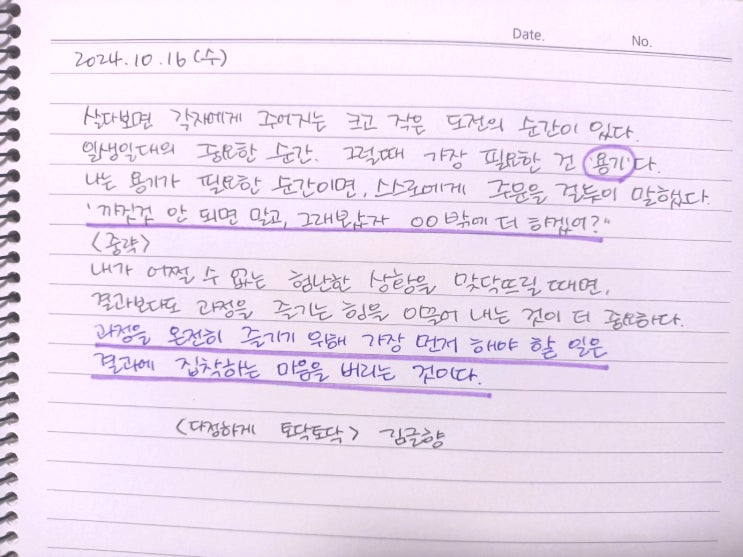 Date.
No.
2024.10.16(수)
살다보면 각자에게 주어지는 크고 작은 도전의 순간이 있다.
일생일대의 중요한 순간. 그럴때 가장 필요한 건 '용기'다.
나는 용기가 필요한 순간이면, 스스로에게 주문을 걸듯이 말했다.
'까짓것 안 되면 말고, 그래봤자 OO밖에 더 하겠어?"
<중략>
내가 어쩔 수 없는 험난한 상황을 맞닥뜨릴 때면,
결과보다도 과정을 즐기는 힘을 이끌어 내는 것이 더 중요하다.
과정을 온전히 즐기기 위해 가장 먼저 해야 할 일은
결과에 집착하는 마음을 버리는 것이다.
<다정하게 토닥토닥> 김글향